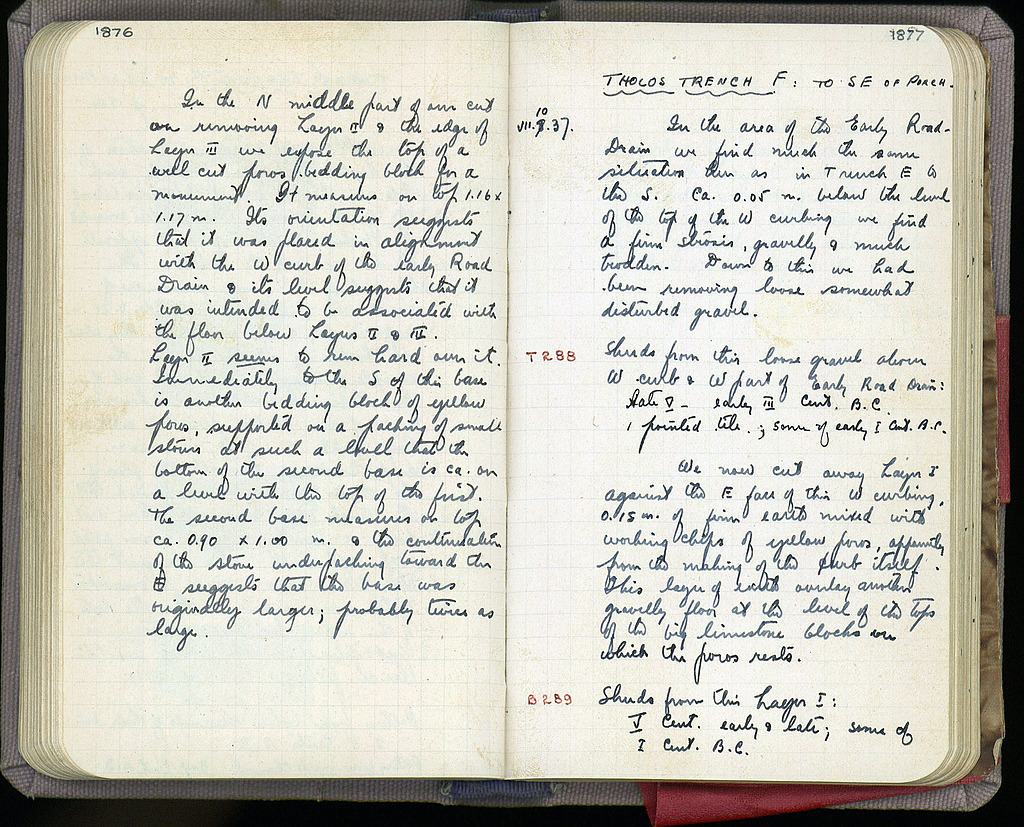 1876
In the N middle part of our cut
on removing Layer II & the edge of
Layer III we expose the top of a
well cut poros bedding block for a
monument. It measures on top 1.16 x
1.17 m. Its orientation suggests
that it was placed in alignment
with the W curb of the early Road
Drain & its level suggests that it
was intended to be associated with
the floor below Layers II & III.
Layer II seems to run hard over it.
Immediately to the S of this base
is another bedding block of yellow
poros, supported on a packing of small
stones at such a level that the
bottom of the second base is ca. on
a level with the top of the first.
The second base measures on top
ca. 0.90 x 1.00 m. & the continuation
of the stone underpacking toward the
E suggests that the base was
originally larger; probably twice as
large.
1877
THOLOS TRENCH F: TO SE OF PORCH.
10
VII.9.37.
In the area of the Early Road-
Drain we find much the same
situation here as in Trench E to
the S. Ca. 0.05 m. below the level
of the top of the W curbing we find
a firm strosis, gravelly & much
trodden. Down to this we had
been removing loose somewhat
disturbed gravel.
T 288 Sherds from this loose gravel above
W curb & W part of Early Road Drain:
late V - early III Cent. B.C.
1 pointed tile.; some of early I Cent. B.C.
We now cut away Layer I
against the E face of this W curbing,
0.15 m. of firm earth mixed with
working chips of yellow poros, apparently
from the making of the curb itself.
This layer of earth overlay another
gravelly floor at the level of the tops
of the big limestone blocks on
which the poros rests.
B 289 Sherds from this Layer I:
V Cent. early & late; some of
I Cent. B.C.